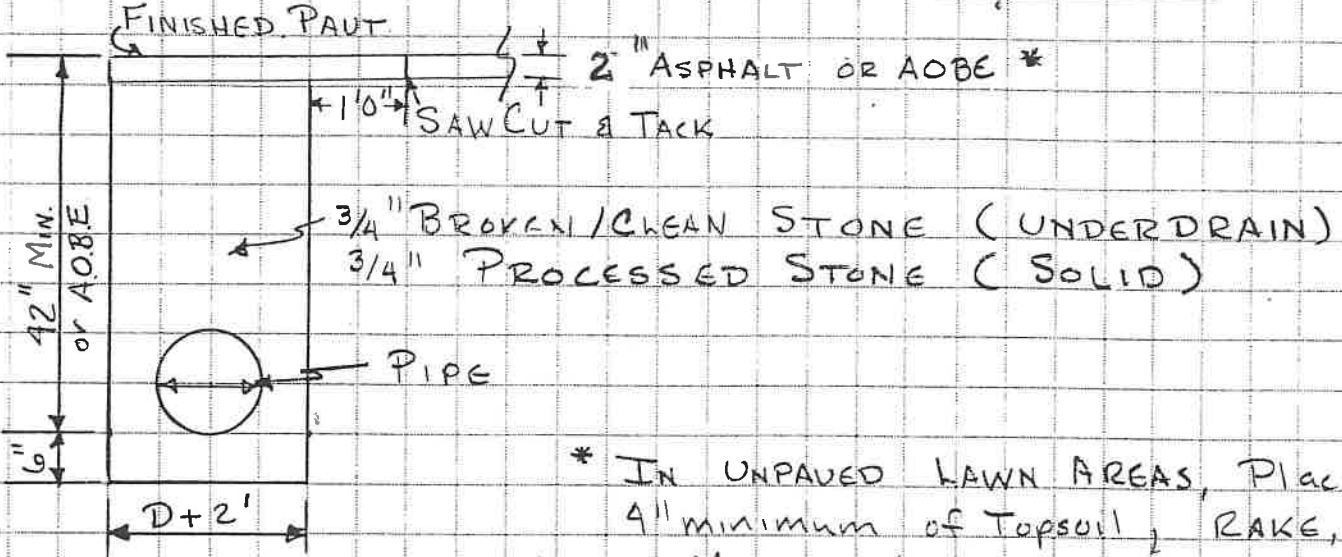 FINISHED PAVT.
2" ASPHALT OR AOBE *
1'0"
SAW CUT & TACK
42" MIN.
or A.O.B.E
3/4" BROKEN/CLEAN STONE (UNDERDRAIN)
3/4" PROCESSED STONE (SOLID)
PIPE
6"
D+2'
* IN UNPAVED LAWN AREAS, Plac
4" minimum of Topsoil, RAKE,